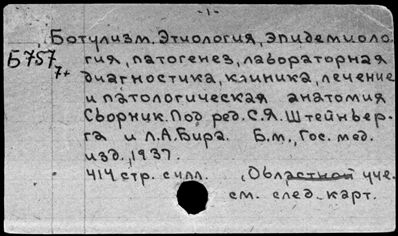 -1-
Ботулизм. Этиология, эпидемиоло-
Б757 гия, патогенез, лабораторная
7+ диагностика, клиника, лечение
и патологическая анатомия
Сборник. Под ред. С.Я. Штейнбер-
га и Л.А. Бира. Б.м., Гос. мед.
изд., 1937.
414 стр. с илл. Областной уче.
см. след. карт.